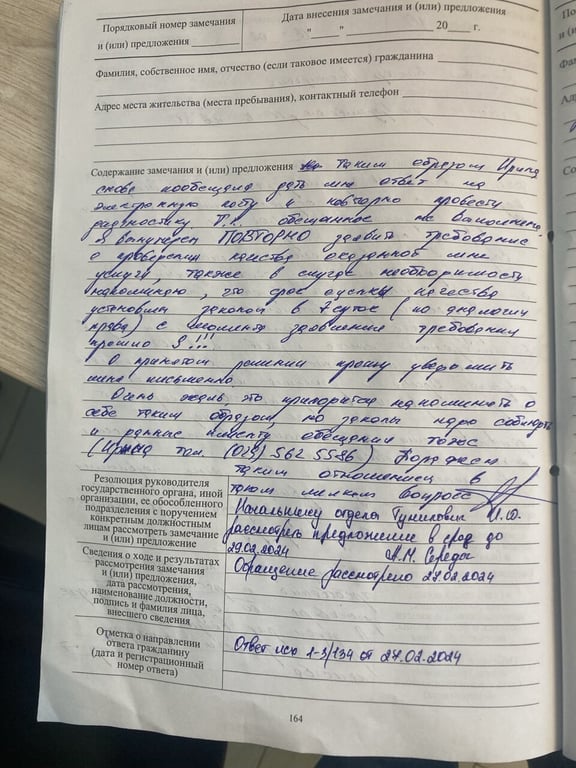 Порядковый номер замечания
и (или) предложения
Дата внесения замечания и (или) предложения
"____" ____________ 20____ г.
Фамилия, собственное имя, отчество (если таковое имеется) гражданина
Адрес места жительства (места пребывания), контактный телефон
Содержание замечания и (или) предложения Таким образом Ирина
снова пообещала дать мне ответ на
электронную почту и повторно провести
диагностику. Т.к. обещанное не выполнено,
я вынужден ПОВТОРНО заявить требование
о проверении качества оказанной мне
услуги, также в случае необходимость
напоминаю, что срок оценки качества
установлен законом в 7 суток (по аналогии
права) с момента заявления требования
прошло 9!!!
О принятом решении прошу уведомить
меня письменно
Очень жаль, что приходится напоминать о
себе таким образом, но законы надо соблюдать
и данные клиенту обещания тоже
(Ирина тел. (029) 562 55-86) Поражен
таким отношением в
таком мелком вопросе
Резолюция руководителя
государственного органа, иной
организации, ее обособленного
подразделения с поручением
конкретным должностным
лицам рассмотреть замечание
и (или) предложение
Начальнику отдела
рассмотреть предложение в срок до
29.02.2024 А.М. Середа
Сведения о ходе и результатах
рассмотрения замечания
и (или) предложения,
дата рассмотрения,
наименование должности,
подпись и фамилия лица,
внесшего сведения
Обращение рассмотрено 27.02.2024
Отметка о направлении
ответа гражданину
(дата и регистрационный
номер ответа)
Ответ исх 1-3/134 от 27.02.2024
164